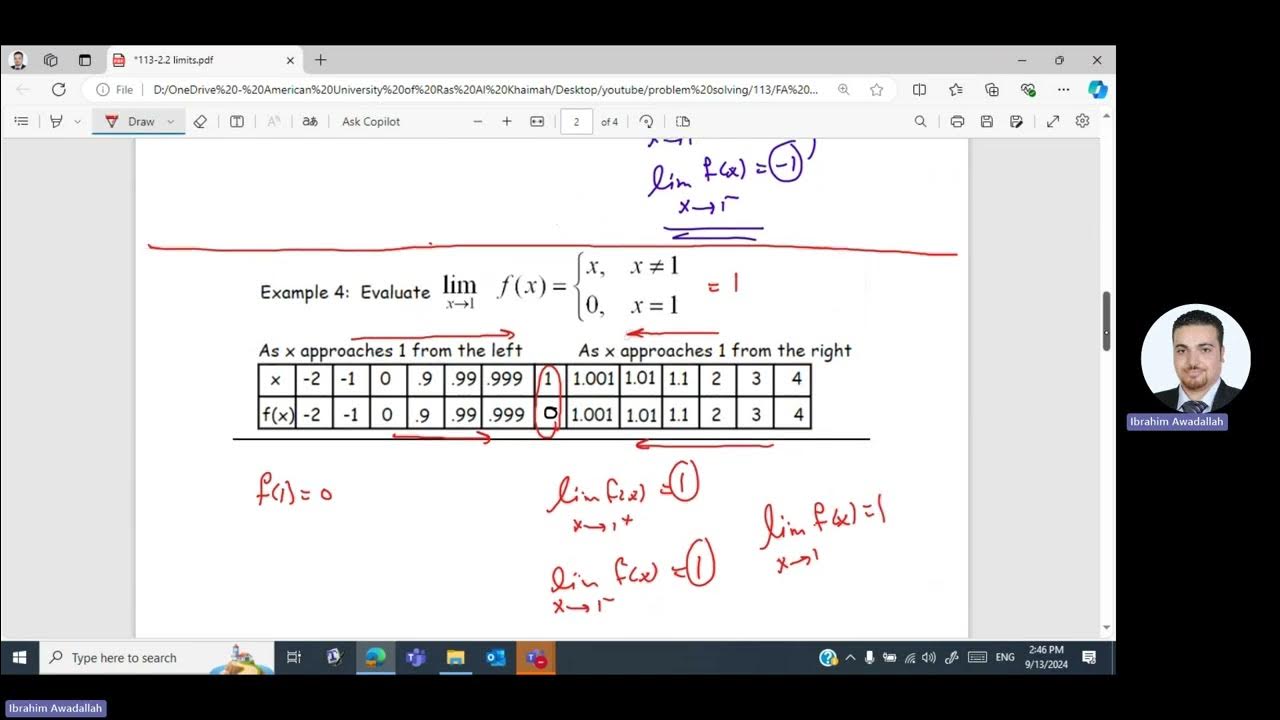 *113-2.2 limits.pdf
File
D:/OneDrive%20-%20American%20University%20of%20Ras%20Al%20Khaimah/Desktop/youtube/problem%20solving/113/FA%20...
Draw
Ask Copilot
2 of 4
lim f(x) = -1
x→1⁻
Example 4: Evaluate lim x→1 f(x) = { x, x ≠ 1
0, x = 1 = 1
As x approaches 1 from the left As x approaches 1 from the right
x -2 -1 0 .9 .99 .999 1 1.001 1.01 1.1 2 3 4
f(x) -2 -1 0 .9 .99 .999 0 1.001 1.01 1.1 2 3 4
f(1) = 0
lim f(x) = 1
x→1⁺
lim f(x) = 1
x→1
lim f(x) = 1
x→1⁻
Ibrahim Awadallah
Type here to search
ENG
2:46 PM
9/13/2024
Ibrahim Awadallah